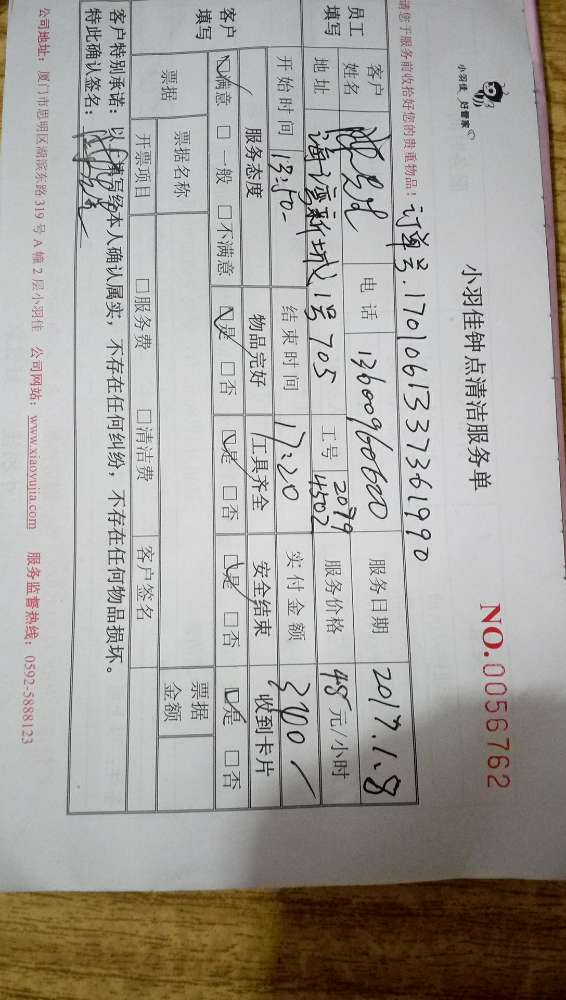 小羽佳 好管家
小羽佳钟点清洁服务单
NO.0056762
请您于服务前收拾好您的贵重物品!
订单号.1701061337361990
员工填写 客户姓名 电话 13600960600 服务日期 2017.1.8
地址 海湾新城1号705 工号 2079 4502 服务价格 48元/小时
开始时间 13:50 结束时间 17:20 实付金额
客户填写 服务态度 物品完好 工具齐全 安全结束 收到卡片
☑满意 □一般 □不满意 ☑是 □否 ☑是 □否 ☑是 □否 ☑是 □否
票据 票据名称 票据金额
开票项目 □服务费 □清洁费 客户签名
客户特别承诺:以上填写经本人确认属实,不存在任何纠纷,不存在任何物品损坏。
特此确认签名:
公司地址:厦门市思明区湖滨东路319号A幢2层小羽佳 公司网站:www.xiaoyujia.com 服务监督热线:0592-5888123